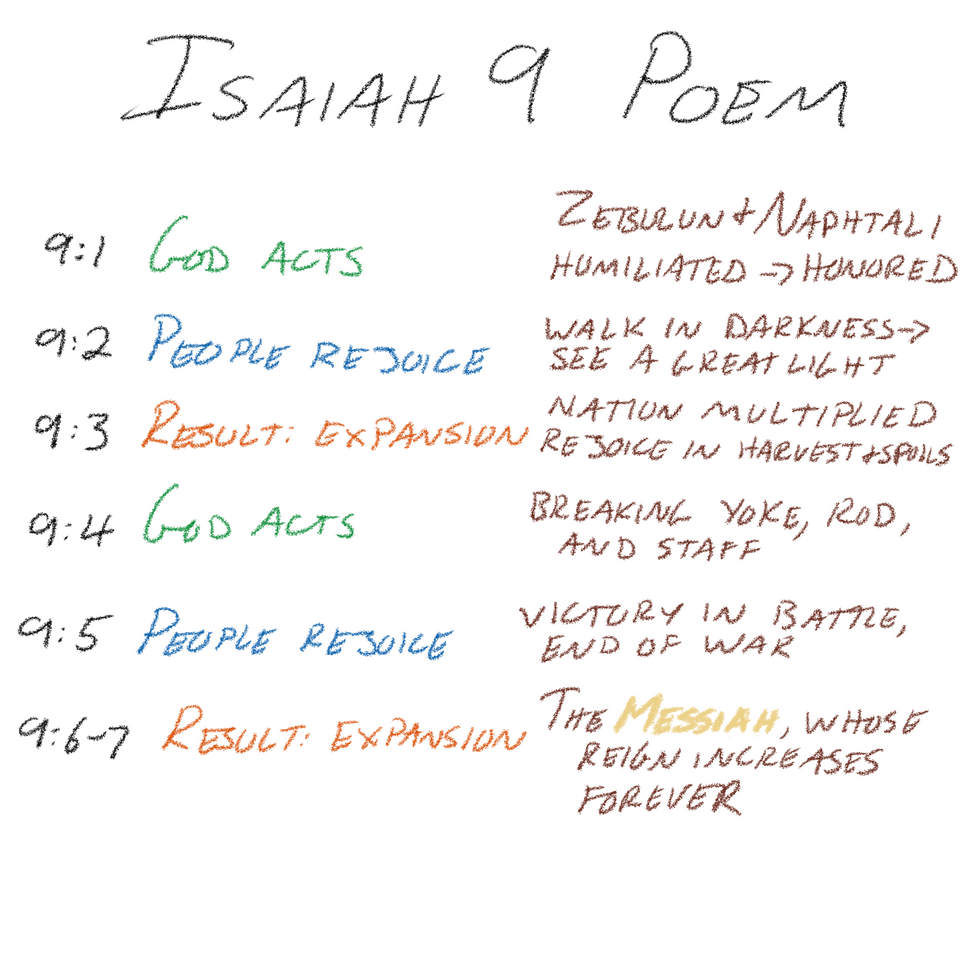 ISAIAH 9 POEM
9:1 GOD ACTS ZEBULUN & NAPHTALI
HUMILIATED → HONORED
9:2 PEOPLE REJOICE WALK IN DARKNESS →
SEE A GREAT LIGHT
9:3 RESULT: EXPANSION NATION MULTIPLIED
REJOICE IN HARVEST & SPOILS
9:4 GOD ACTS BREAKING YOKE, ROD,
AND STAFF
9:5 PEOPLE REJOICE VICTORY IN BATTLE,
END OF WAR
9:6-7 RESULT: EXPANSION THE MESSIAH, WHOSE
REIGN INCREASES
FOREVER